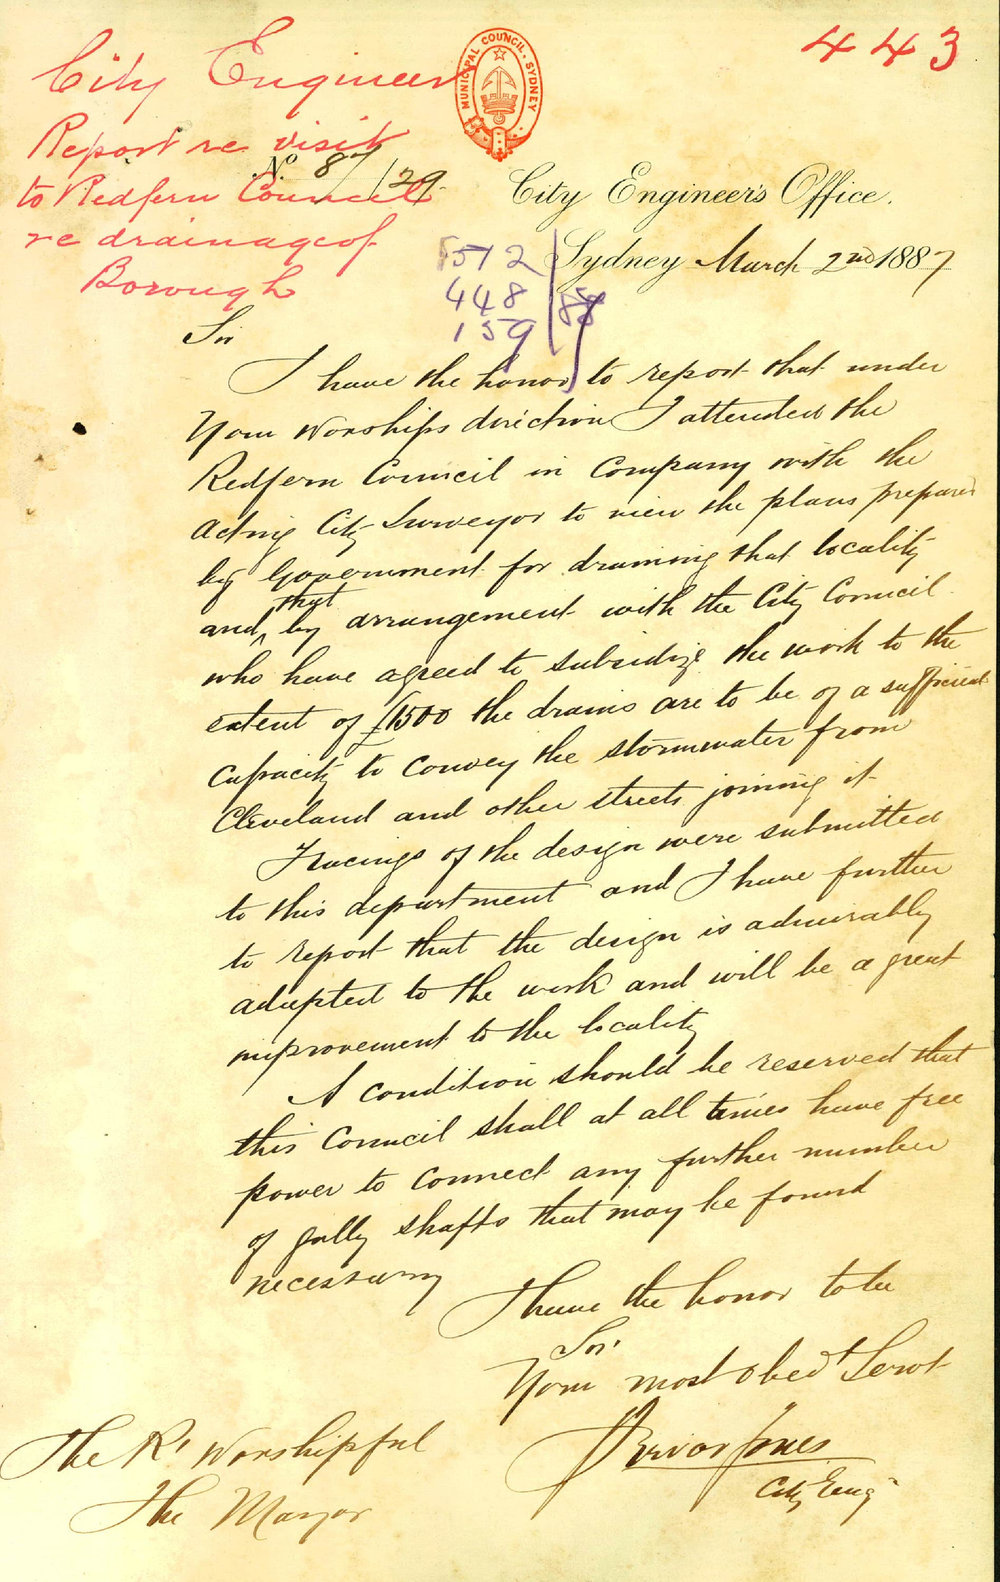 443
City Engineer
Report re visit
to Redfern Council
re drainage of
Borough
MUNICIPAL COUNCIL. SYDNEY
No. 87/29
City Engineer's Office.
Sydney March 2nd 1887
512
448
159
Sir
I have the honor to report that under
Your Worships direction I attended the
Redfern Council in Company with the
Acting City Surveyor to view the plans prepared
by Government for draining that locality
and, that by arrangement with the City Council
who have agreed to subsidize the work to the
extent of £1500 the drains are to be of a sufficient
capacity to convey the stormwater from
Cleveland and other streets joining it
Tracings of the design were submitted
to this department and I have further
to report that the design is admirably
adapted to the work and will be a great
improvement to the locality
A condition should be reserved that
this Council shall at all times have free
power to connect any further number
of gully shafts that may be found
necessary
I have the honor to be
Sir
Your most obedt Servt
Trevor Jones
City Engr
The Rt Worshipful
The Mayor